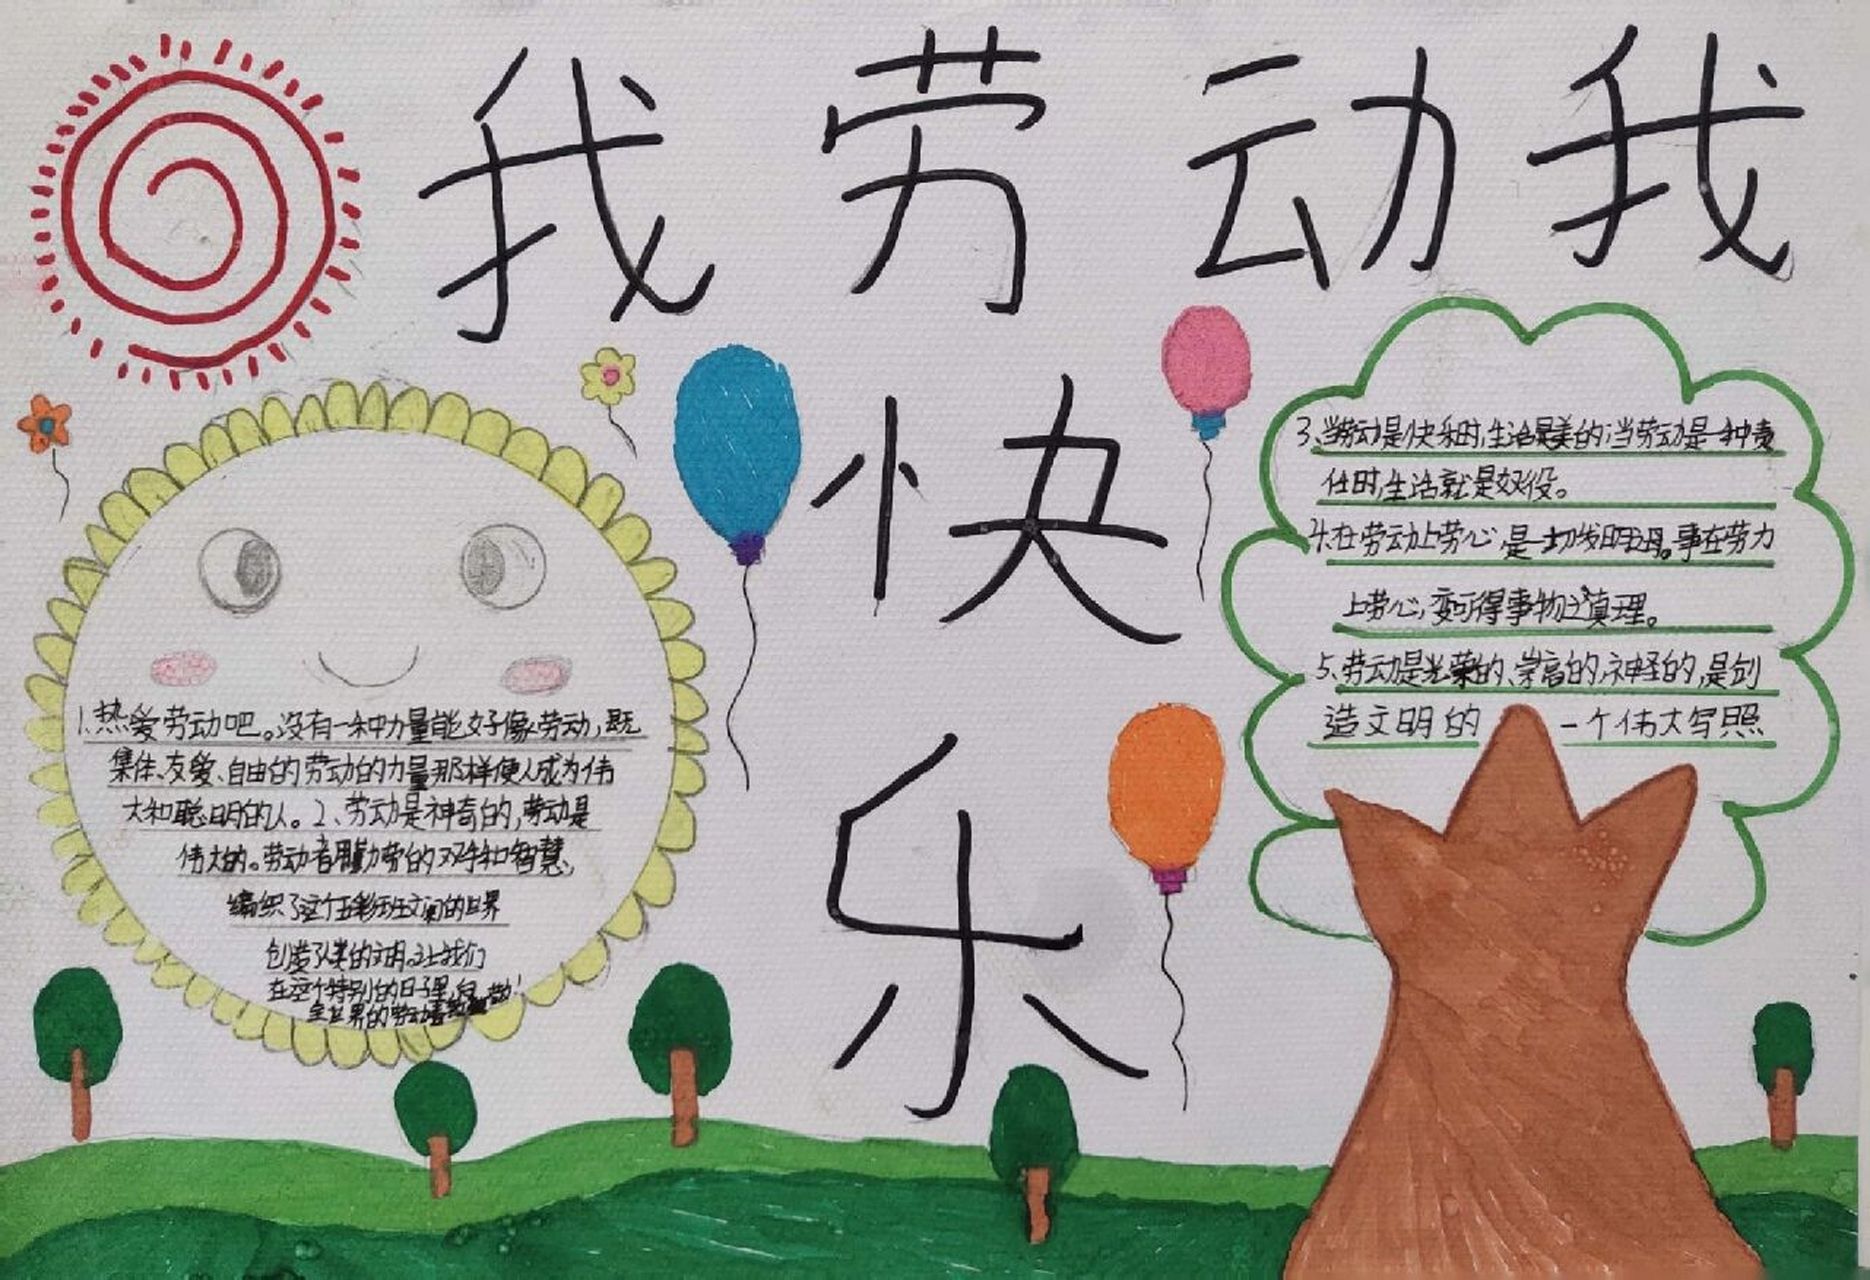 我劳动我
快
乐
1.热爱劳动吧。没有一种力量能好像劳动,既
集体、友爱、自由的劳动的力量那样使人成为伟
大和聪明的人。2、劳动是神奇的,劳动是
伟大的。劳动者用勤劳的双手和智慧,
编织了这个五彩班文阑的世界
创造了人类的文明。让我们
在这个特别的日子里,
全世界的劳动
3、当劳动是快乐时,生活是美的;当劳动是一种责
任时,生活就是奴役。
4.在劳动上劳心,是一切发明之母。事在劳力
上劳心,变可得事物之真理。
5、劳动是光荣的、崇高的,神经的,是创
造文明的 一个伟大写照